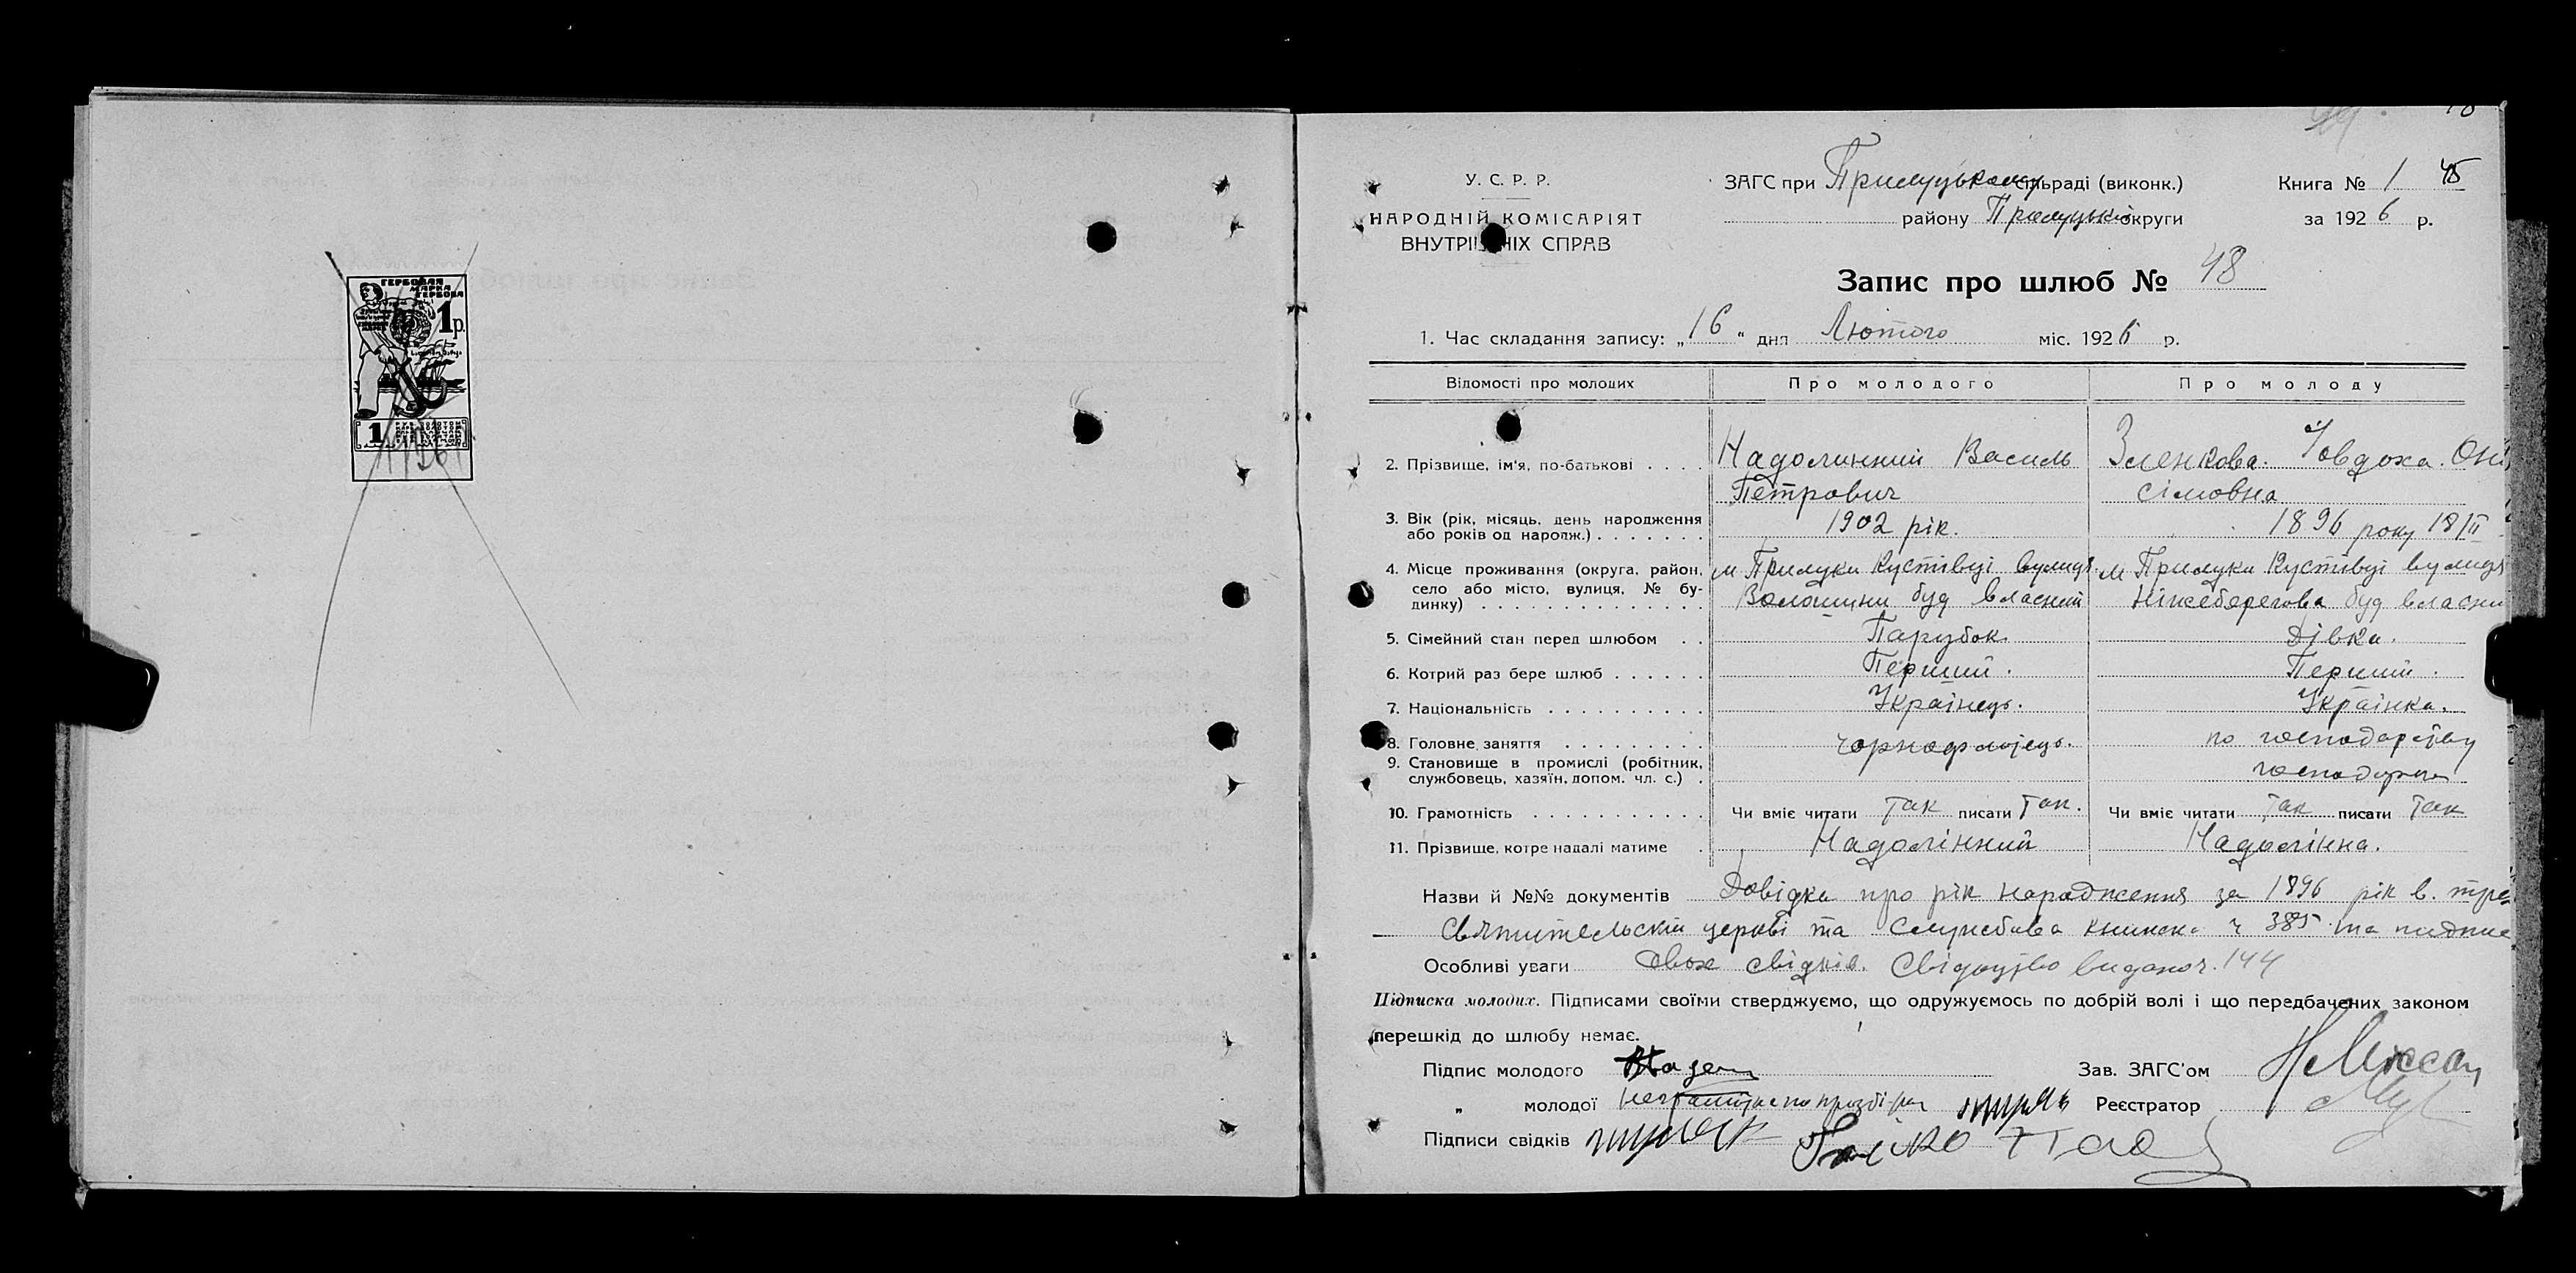 ГЕРБОВАЯ
МАРКА
ГЕРБОВА
1 р.
1
У. С. Р. Р.
НАРОДНІЙ КОМІСАРІЯТ
ВНУТРІШНІХ СПРАВ
ЗАГС при Прилуцькому сільраді (виконк.)
району Прилуцької округи
Книга № 1 45
за 1926 р.
Запис про шлюб № 48
1. Час складання запису: „16" дня Лютого міс. 1926 р.
Відомості про молодих Про молодого Про молоду
2. Прізвище, ім'я, по-батькові . . . . Надолинний Василь Зленкова. Йовдоха. Оні
Петрович сімовна
3. Вік (рік, місяць, день народження 1902 рік. 1896 року 18/II
або років од нарож.) . . . . . . .
4. Місце проживання (округа, район, м Прилуки Кустівці вулиця м Прилуки Кустівці вулиця
село або місто, вулиця, № бу- Волошини буд власний Ніжеберегова буд власни
динку) . . . . . . . . . . . . . .
5. Сімейний стан перед шлюбом . . Парубок Дівка.
6. Котрий раз бере шлюб . . . . . . Перший. Перший.
7. Національність . . . . . . . . . . Українець. Українка.
8. Головне заняття . . . . . . . . . чорнофлоєць. по господарству
9. Становище в промислі (робітник, господарка
службовець, хазяїн, допом. чл. с.) .
10. Грамотність . . . . . . . . . . . Чи вміє читати так писати так. Чи вміє читати так писати так
11. Прізвище, котре надалі матиме . Надолінний Надолінна.
Назви й №№ документів Довідка про рік народження за 1896 рік в. трє
Святительскій церкві та Службова книжка ч 385 та підпис
Особливі уваги двох свідків. Свідоцтво видано ч. 144
Підписка молодих. Підписами своїми стверджуємо, що одружуємось по добрій волі і що передбачених законом
перешкід до шлюбу немає.
Підпис молодого Зав. ЗАГС'ом
„ молодої неграмотна по прозбі Реєстратор
Підписи свідків